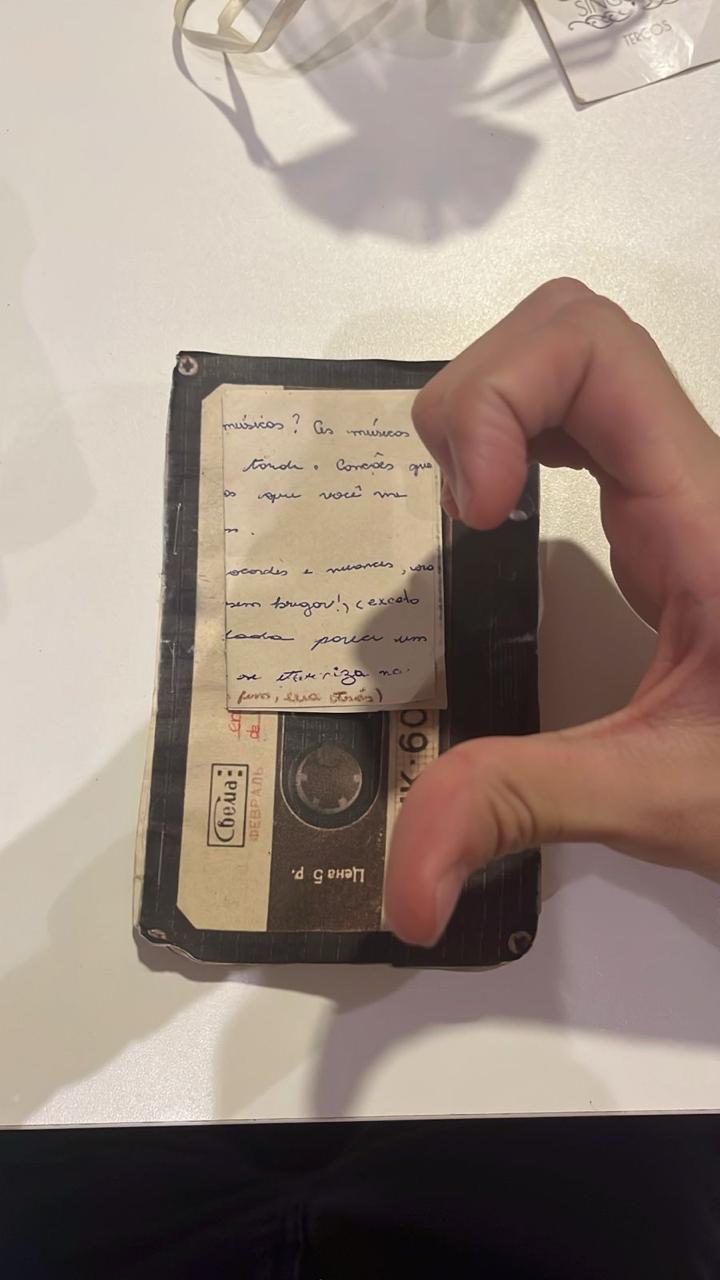 SING
TERÇOS
músicas? As músicas
tarde. Canções que
os que você me
m.
acordes e nuances, uma
sem brigar!, (exceto
lada por um
se eterniza na
en
de
Свема
ФЕВРАЛЬ
МК·60
Цена 5 р.